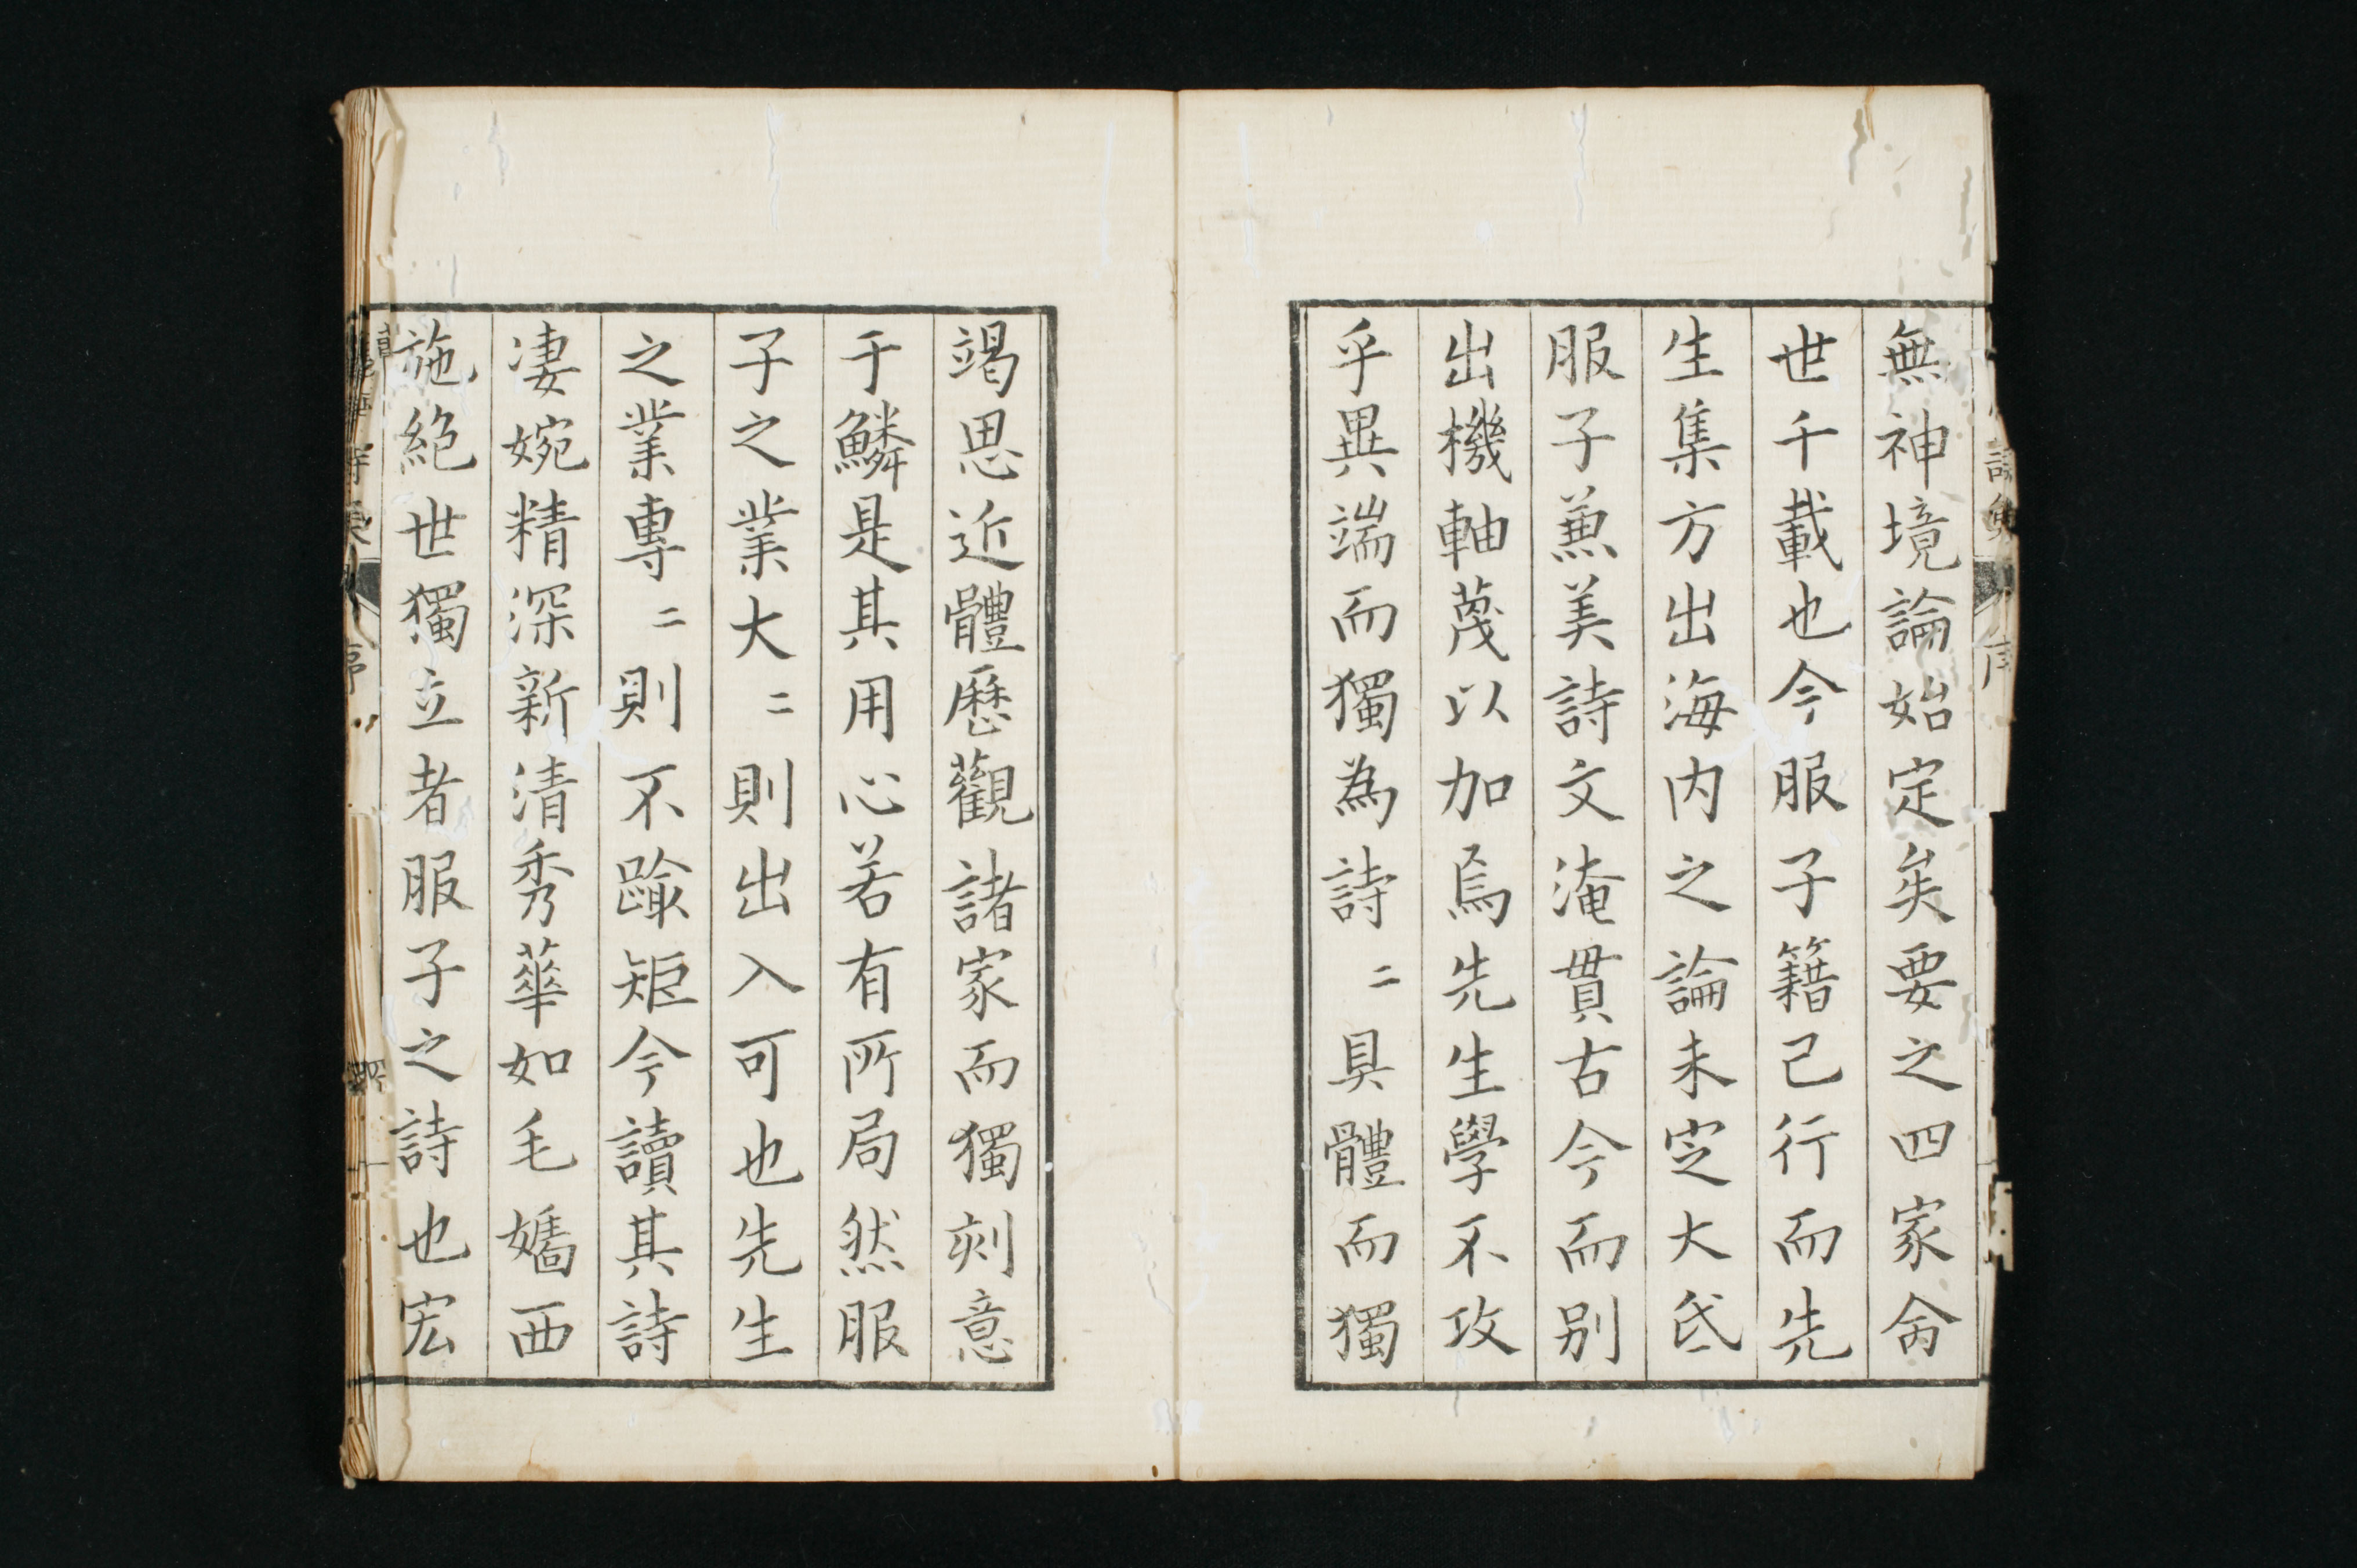 無神境論始定矣要之四家命
世千載也今服子籍已行而先
生集方出海内之論未定大氐
服子兼美詩文淹貫古今而别
出機軸蔑以加焉先生學不攻
乎異端而獨為詩〻具體而獨
竭思近體歷觀諸家而獨刻意
于鱗是其用心若有所局然服
子之業大〻則出入可也先生
之業專〻則不踰矩今讀其詩
凄婉精深新清秀華如毛嬙西
施絶世獨立者服子之詩也宏
序
四